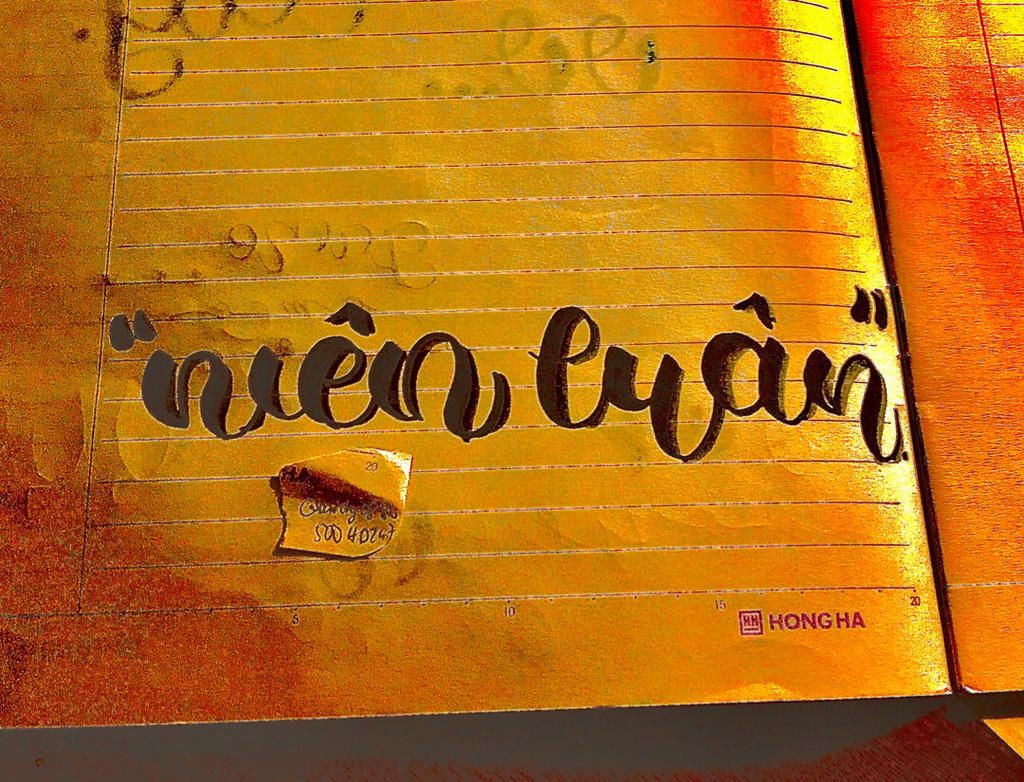 “niên luận”
20
500 HD247
5 10 15 20
HH HONG HA